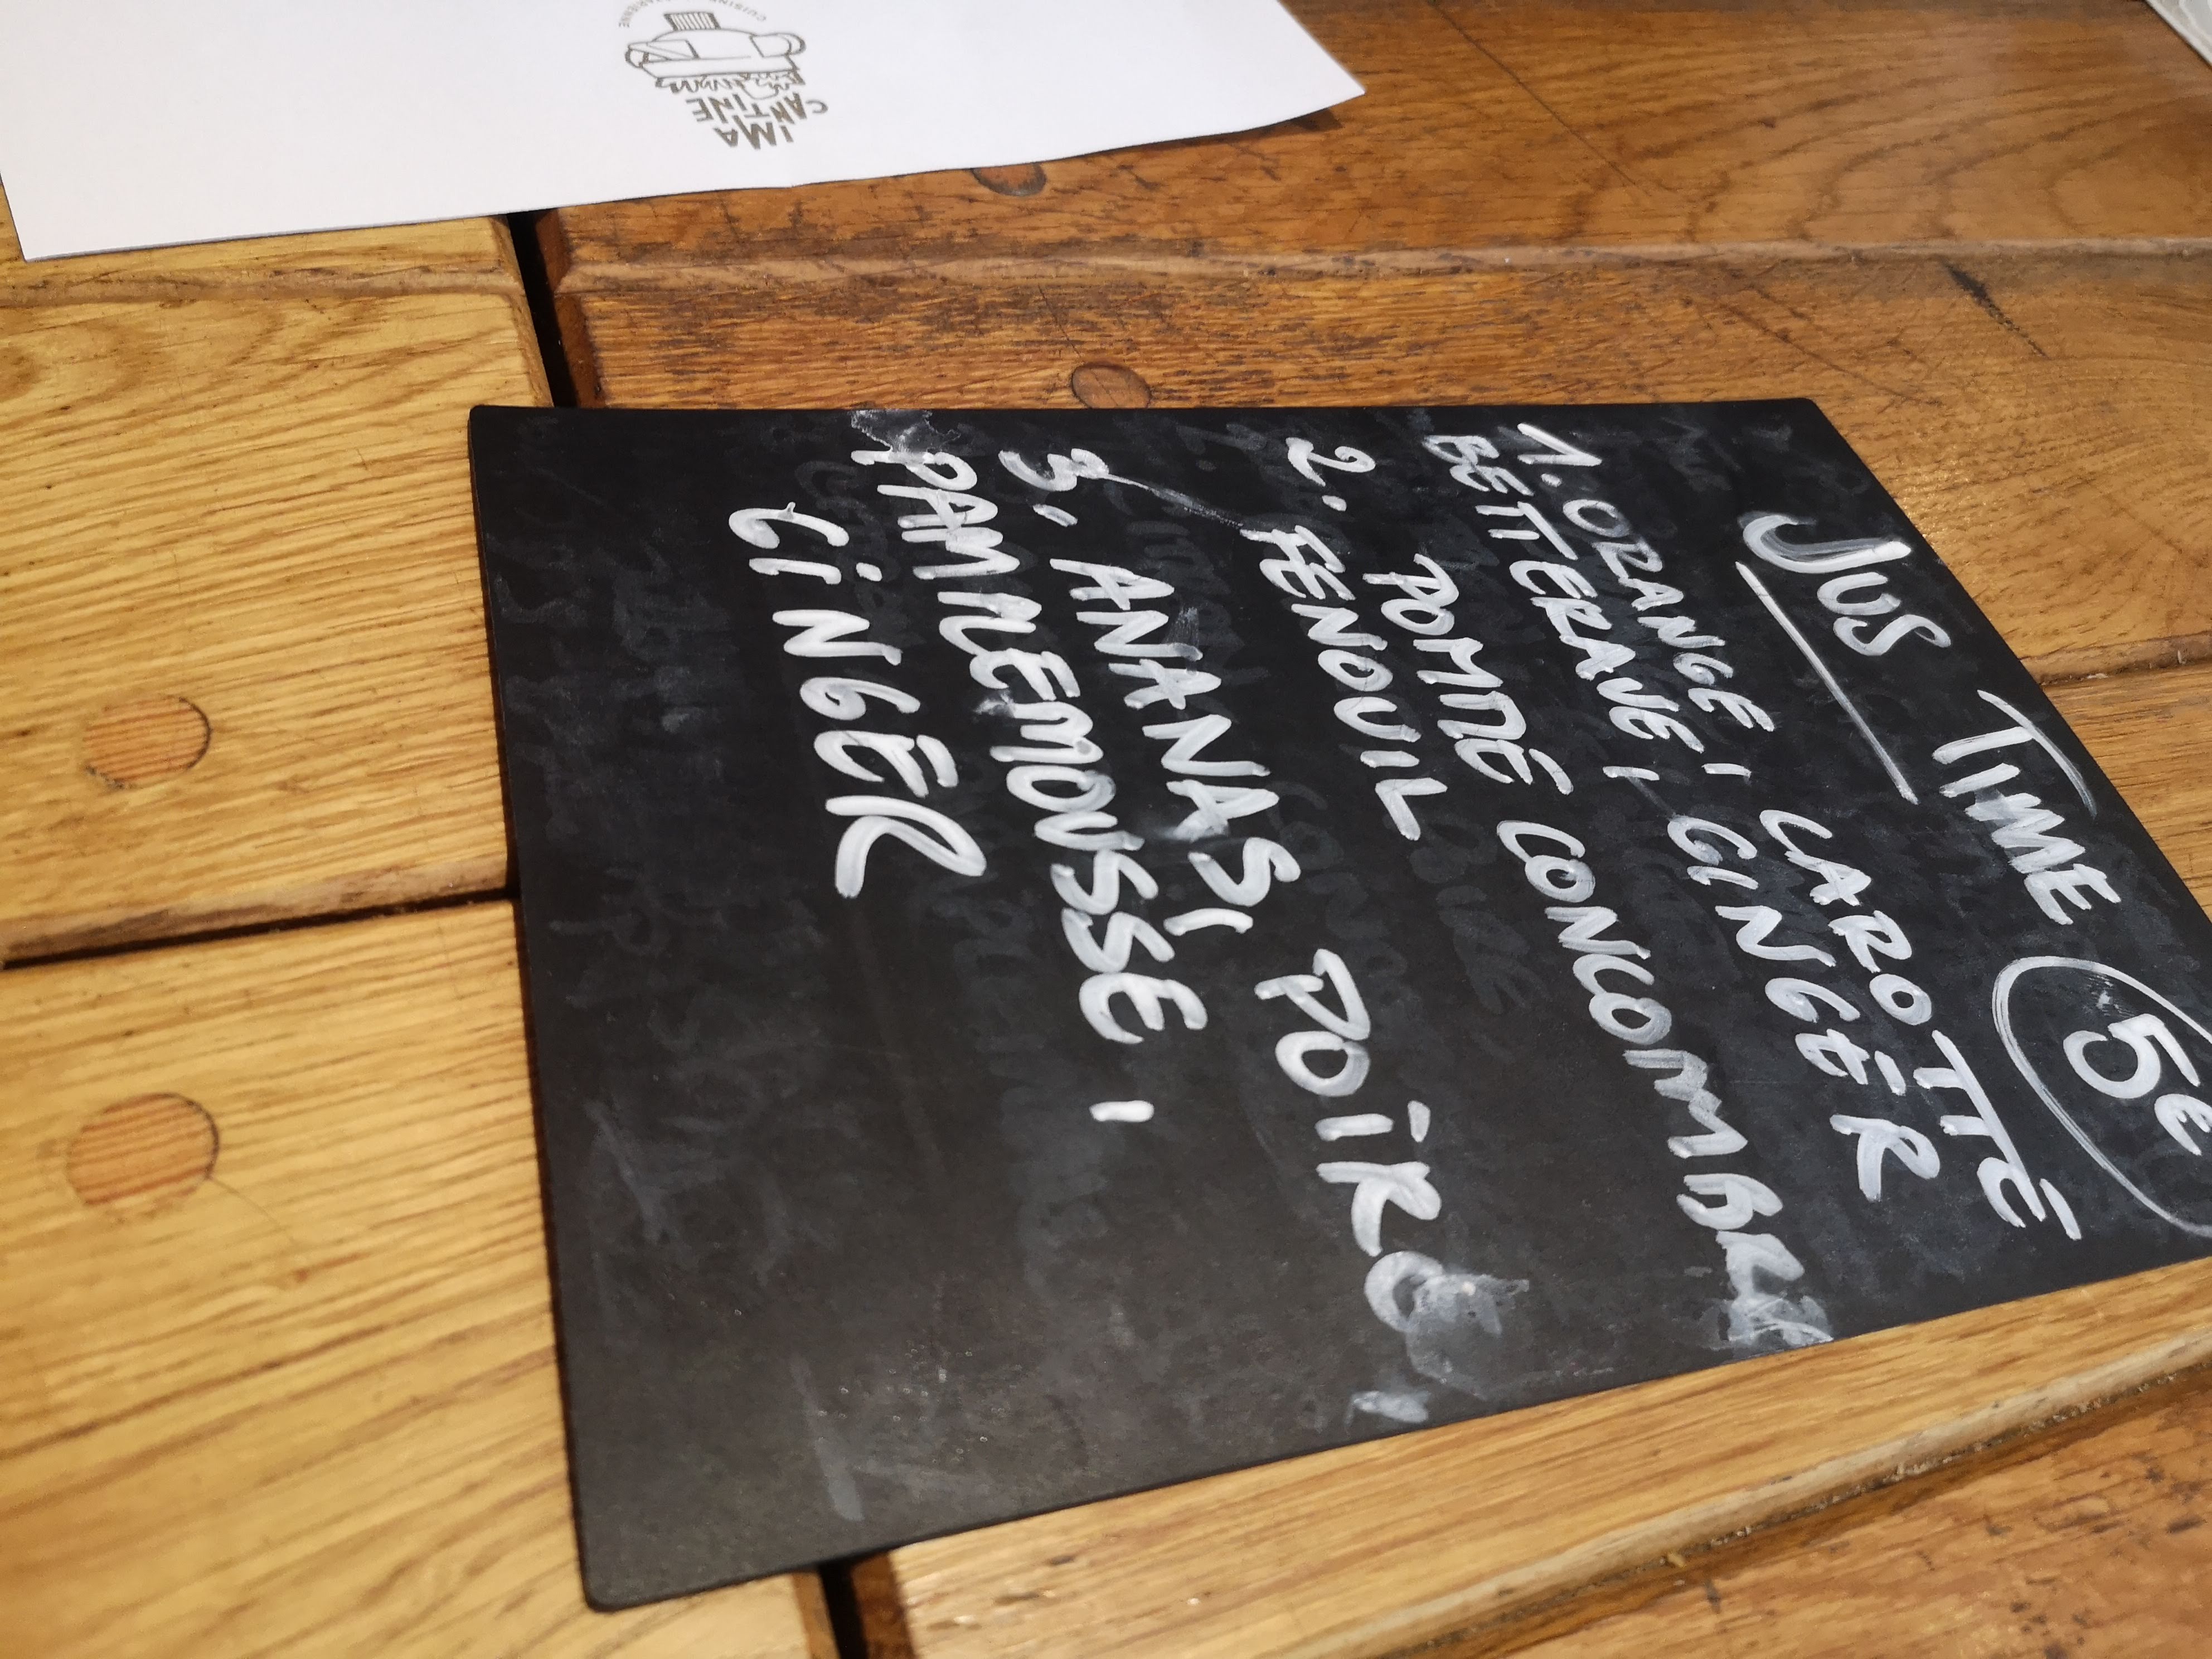 JUS TIME 5€
1. ORANGE, CAROTTE
BETTERAVE, GINGER
2. POMME CONCOMBRE
FENOUIL
3. ANANAS, POIRE
PAMPLEMOUSSE,
GiNGER
IMA
CANTiNE